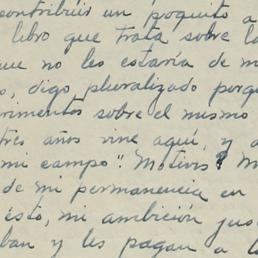 contribuir un poquito a
libro que trata sobre la
que no les estaría de m
s, digo pluralizado porq
rimentos sobre el mismo
tres años vine aquí, y a
mi campo". Motivos? M
de mi permanencia en
ésto, mi ambición jus
ban y les pagan a l